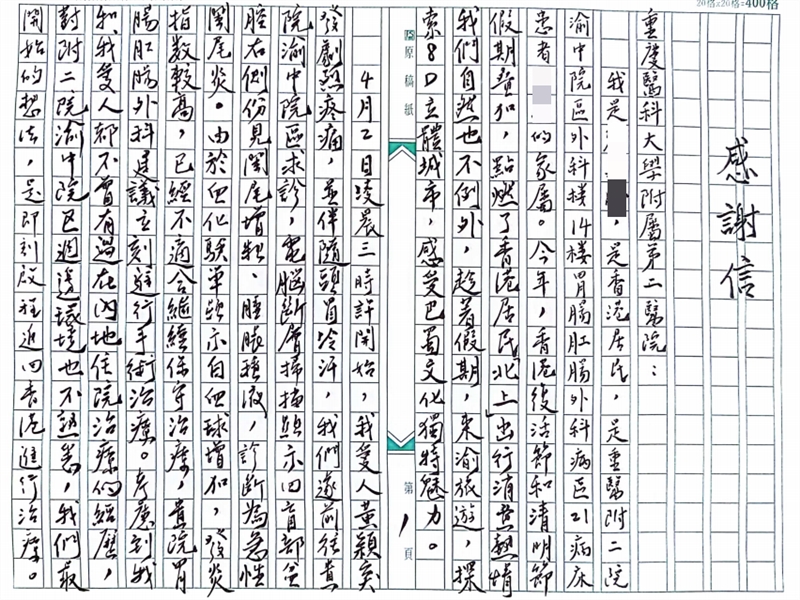 20格x20格=400格
感謝信
重慶醫科大學附屬第二醫院：
我是，是香港居民，是重醫附二院
渝中院區外科樓14樓胃腸肛腸外科病區21病床
患者的家屬。今年，香港復活節和清明節
假期疊加，點燃了香港居民「北上」出行消費熱情
我們自然也不例外，趁著假期，來渝旅遊，探
索8D立體城市，感受巴蜀文化獨特魅力。
原稿紙
第1頁
4月2日凌晨三時許開始，我愛人黃穎突
發劇烈疼痛，並伴隨頭冒冷汗，我們遂前往貴
院渝中院區求診，電腦斷層掃描顯示回盲部盆
腔右側份見闌尾增粗、腫脹積液，診斷為急性
闌尾炎。由於血化驗單顯示白血球增加，發炎
指數較高，已經不適合繼續保守治療，貴院胃
腸肛腸外科建議立刻進行手術治療。考慮到我
和我愛人都不曾有過在內地住院治療的經歷，
對附二院渝中院區週邊環境也不熟悉，我們最
開始的想法，是即刻啟程返回香港進行治療。